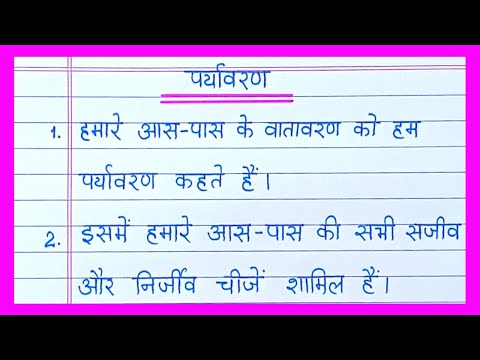 पर्यावरण
1. हमारे आस-पास के वातावरण को हम
पर्यावरण कहते हैं।
2. इसमें हमारे आस-पास की सभी सजीव
और निर्जीव चीजें शामिल हैं।